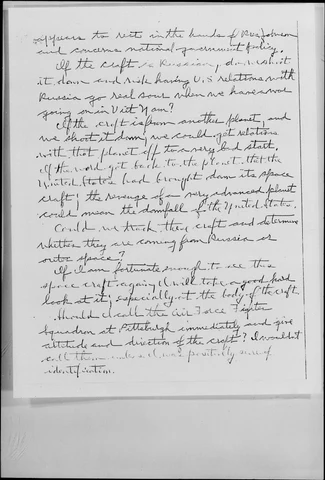 appears to rest in the hands of Pres Johnson
and concerns national government policy.
If the craft is Russian, do we shoot
it down and risk having U.S relations with
Russia go real sour when we have a war
going on in Viet Nam?
If the craft is from another planet, and
we shoot it down, we could get relations
with that planet off to a very bad start.
If the word got back to the planet that the
United States had brought down its space
craft; the revenge of a very advanced planet
could mean the downfall of the United States.
Could we track these craft and determine
whether they are coming from Russia or
outer space?
If I am fortunate enough to see the
space craft again, I will take a good hard
look at it; especially at the body of the craft
Should I call the Air Force Fighter
Squadron at Pittsburgh immediately and give
altitude and direction of the craft? I wouldn't
call them unless I was positively sure of
identification.